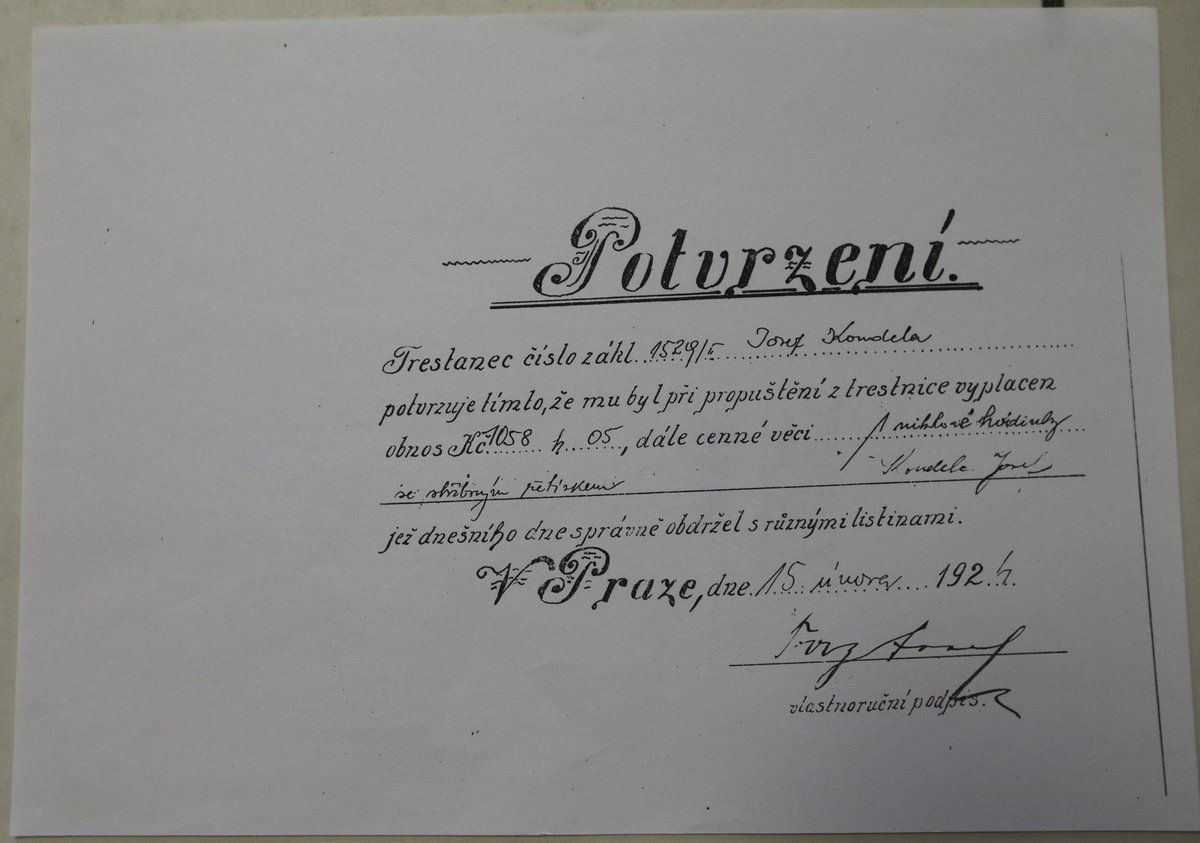 Potvrzení.
Trestanec číslo zákl. 1529/I Josef Koudela
potvrzuje tímto, že mu byl při propuštění z trestnice vyplacen
obnos Kč 1058 h 05, dále cenné věci 1 niklové hodinky
se stříbrným řetízkem Koudela Josef
jež dnešního dne správně obdržel s různými listinami.
V Praze, dne 15 února 1924.
vlastnoruční podpis.